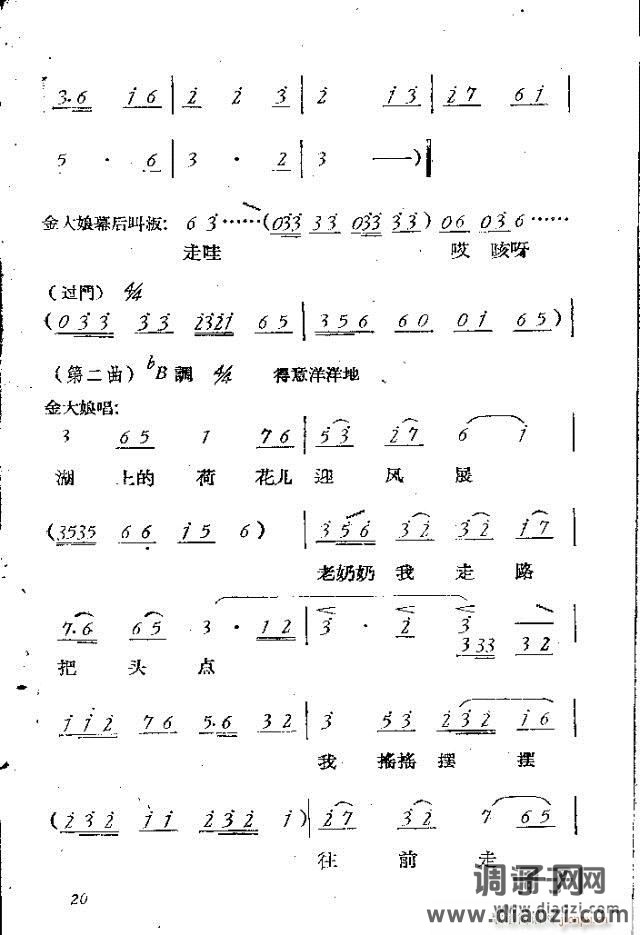 3·6 i 6 | 2 2 3 | 2 i 3 | 2 7 6 i |
5 · 6 | 3 · 2 | 3 —)|
金大娘幕后叫板: 6 3……(033 33 033 33) 06 03 6……
走哇 哎 咳呀
(过門) 4/4
(0 3 3 3 3 2321 6 5 | 3 5 6 6 0 0 i 6 5)|
(第二曲) bB 調 4/4 得意洋洋地
金大娘唱:
3 6 5 1 7 6 | 5 3 2 7 6 i |
湖 上的 荷 花儿 迎 风 展
(3535 6 6 i 5 6) | 3 5 6 3 2 3 2 i 7 |
老奶奶 我 走 路
7·6 6 5 3 · 1 2 | 3 · 2 3
3 33 3 2 |
把 头 点
i i 2 7 6 5·6 3 2 | 3 5 3 2 3 2 i 6 |
我 搖搖 摆 摆
(2 3 2 i i 2 3 2 i) | 2 7 3 2 7 6 5 |
往 前 走
20
调子网网
www.diaozi.com